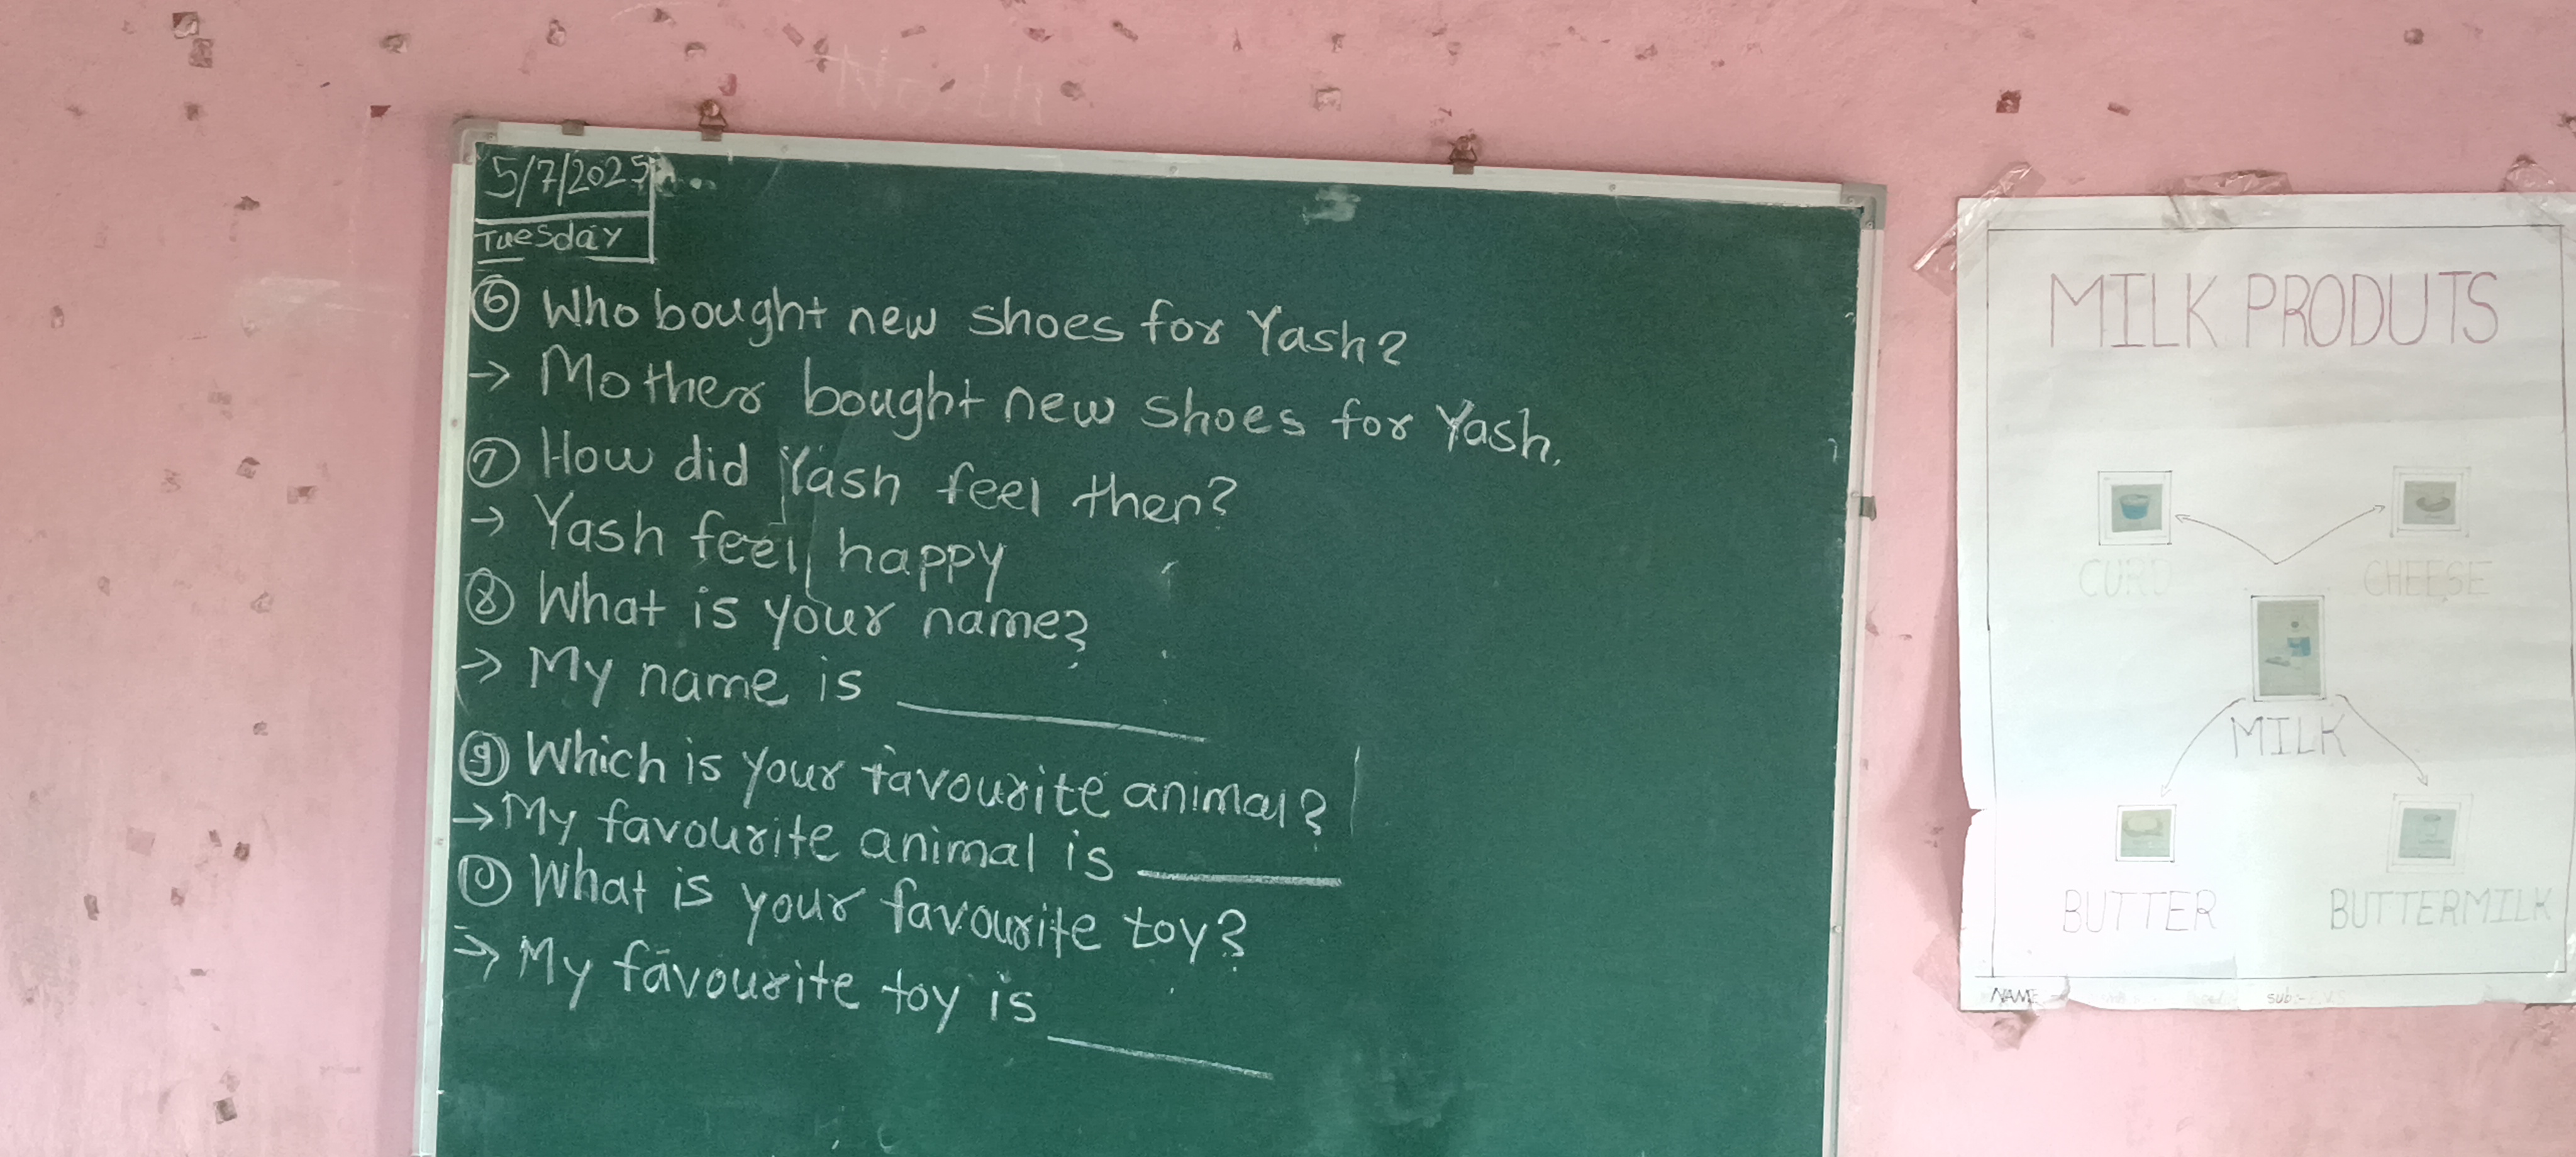 North
5/7/2025
Tuesday
6 Who bought new shoes for Yash?
→ Mother bought new shoes for Yash.
7 How did Yash feel then?
→ Yash feel happy
8 What is your name?
→ My name is ________
9 Which is your favourite animal?
→ My favourite animal is ________
10 What is your favourite toy?
→ My favourite toy is ________
MILK PRODUTS
CURD CHEESE
MILK
BUTTER BUTTERMILK
NAME sub:-